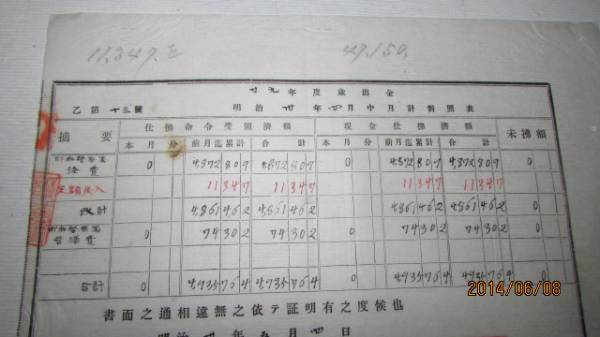 11,347.
47,150.
廿九年度歳出金
乙第十三號 明治卅年四月中月計對照表
摘要 仕拂命令受領濟額 現金仕拂濟額 未拂額
本月分 前月迄累計 合計 本月分 前月迄累計 合計
0 4,872 807 4,872 807 0 4,872 807 4,872 807 0
11 347 11 347 11 347 11 347
改計 4,861 462 4,861 462 4,861 462 4,861 462
0 74 302 74 302 0 74 302 74 302 0
合計 0 4,935 764 4,935 764 0 4,935 764 4,935 764 0
書面之通相違無之依テ証明有之度候也
明治卅年五月四日
2014/06/08